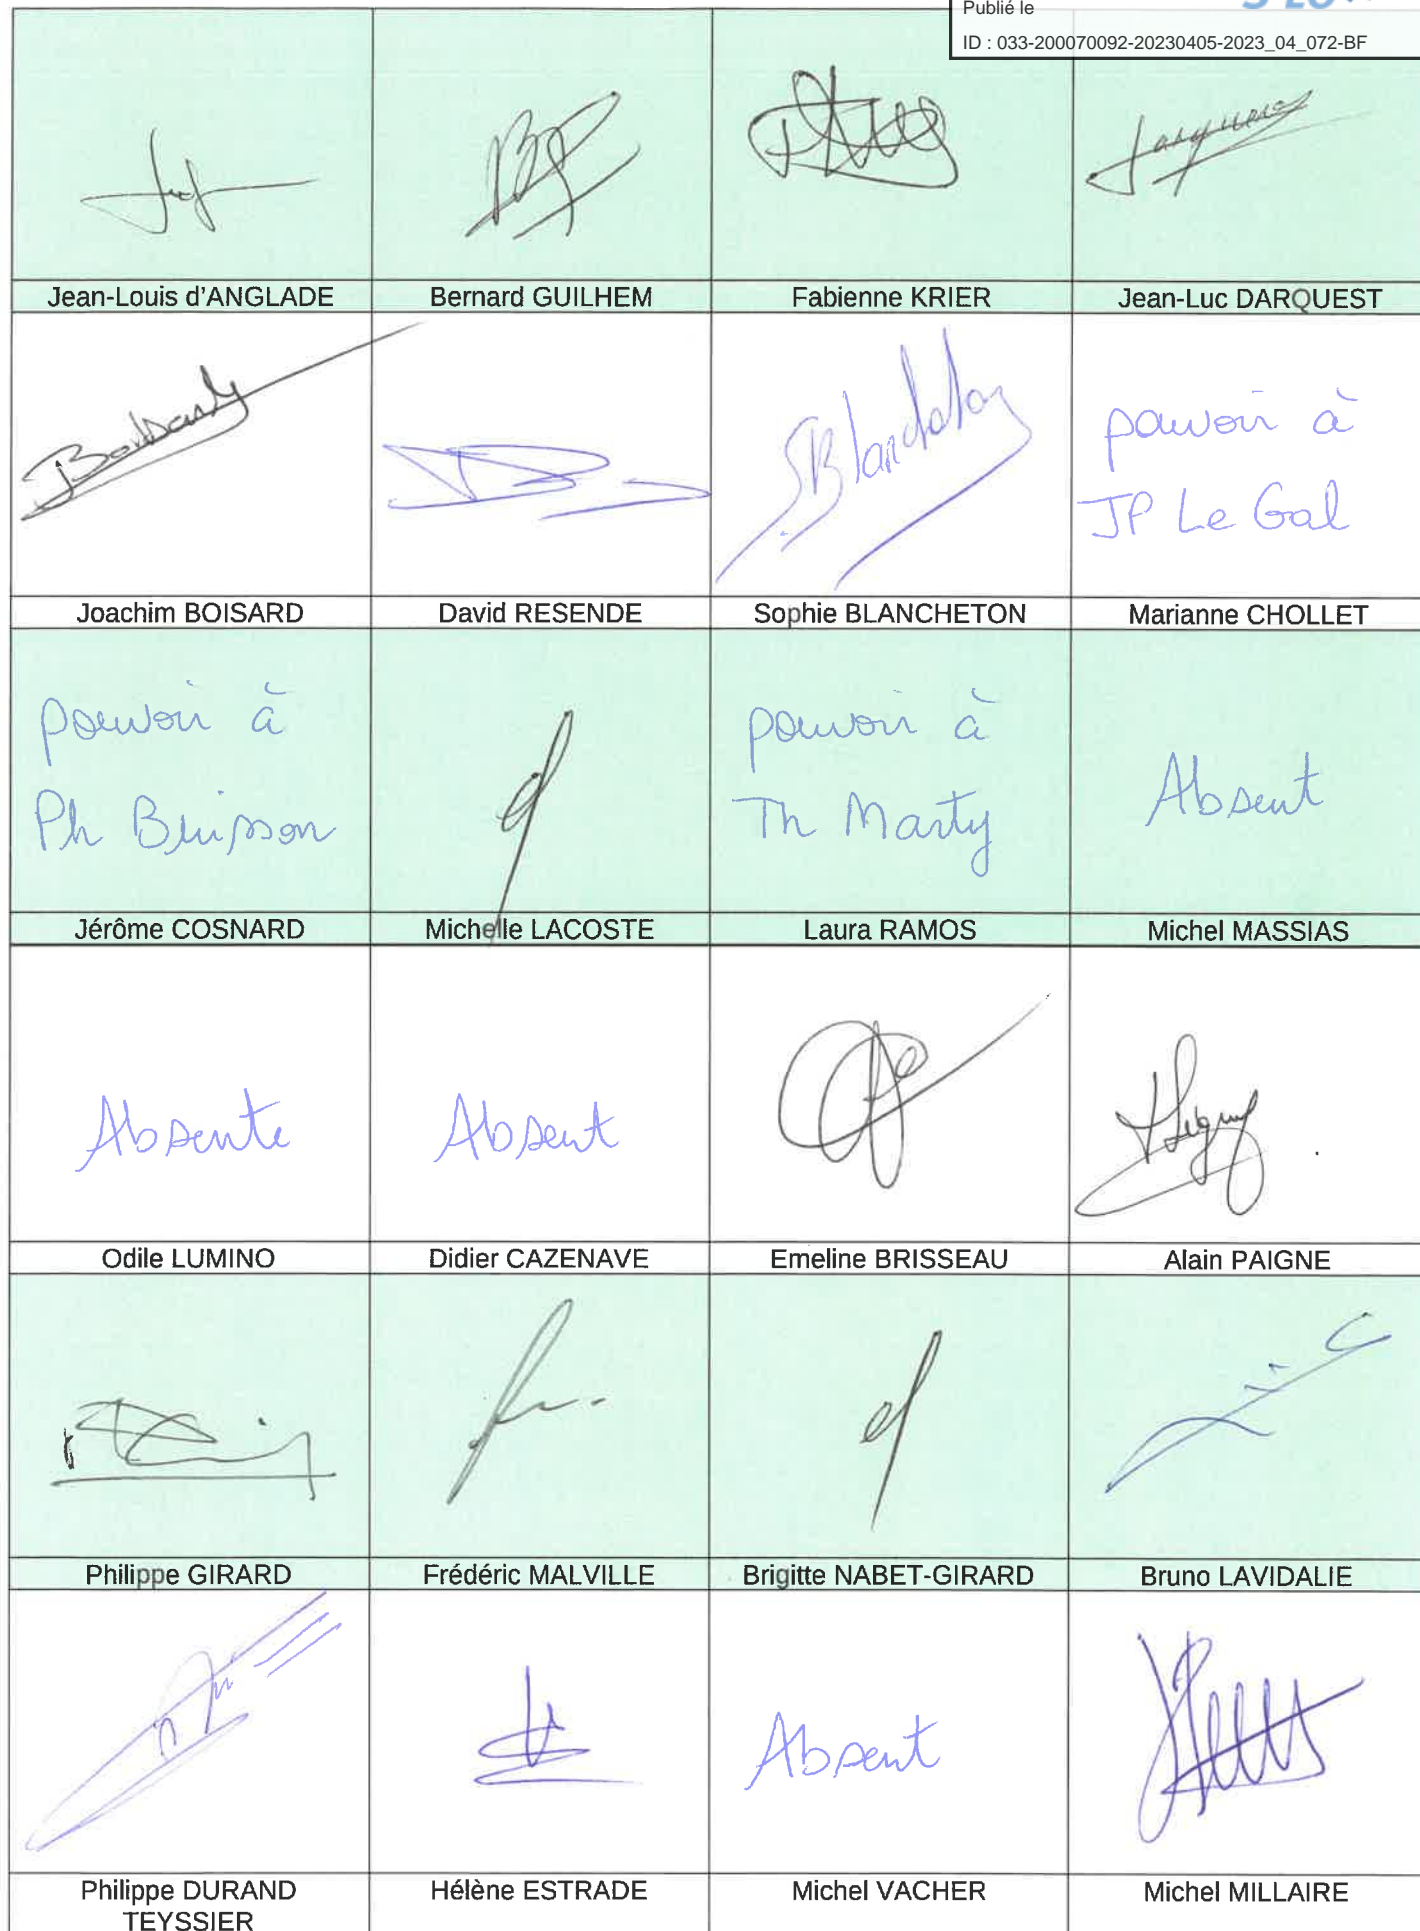 Publié le
ID : 033-200070092-20230405-2023_04_072-BF
Jean-Louis d'ANGLADE
Bernard GUILHEM
Fabienne KRIER
Jean-Luc DARQUEST
pouvoir à
JP Le Gal
Joachim BOISARD
David RESENDE
Sophie BLANCHETON
Marianne CHOLLET
pouvoir à
Ph Buisson
pouvoir à
Th Marty
Absent
Jérôme COSNARD
Michelle LACOSTE
Laura RAMOS
Michel MASSIAS
Absente
Absent
Odile LUMINO
Didier CAZENAVE
Emeline BRISSEAU
Alain PAIGNE
Philippe GIRARD
Frédéric MALVILLE
Brigitte NABET-GIRARD
Bruno LAVIDALIE
Absent
Philippe DURAND
TEYSSIER
Hélène ESTRADE
Michel VACHER
Michel MILLAIRE